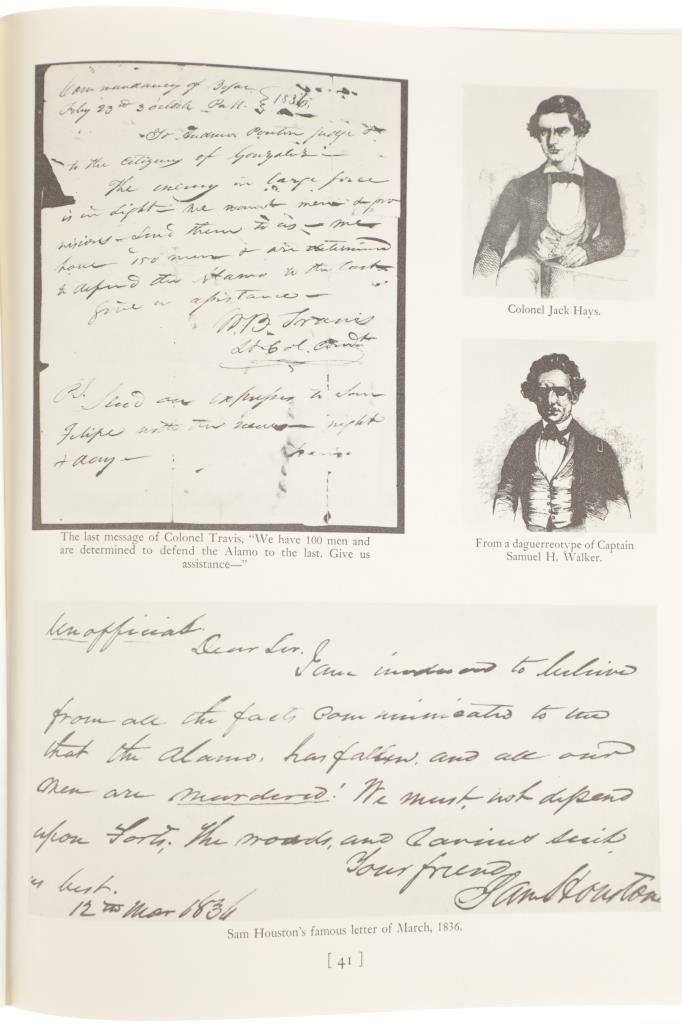 Commandancy of Bejar
Feby 23rd 3 oclock P.M. 1836
To Andrew Ponton Judge &
to the citizens of Gonzales—
The enemy in large force
is in sight— We want men & pro
visions— Send them to us— We
have 150 men & are determined
to defend the Alamo to the last—
Give us assistance—
W. B. Travis
Lt. Col. Comdt
P.S. Send an express to San
Felipe with the news— night
& day—
Travis
The last message of Colonel Travis, "We have 100 men and
are determined to defend the Alamo to the last. Give us
assistance—"
Colonel Jack Hays.
From a daguerreotype of Captain
Samuel H. Walker.
Unofficial.
Dear Sir. I am induced to believe
from all the facts communicated to me
that the Alamo, has fallen, and all our
men are murdered! We must, not depend
upon Forts; The roads, and ravines suit
us best.
Your friend,
Sam Houston
12th Mar 1836
Sam Houston's famous letter of March, 1836.
[ 41 ]